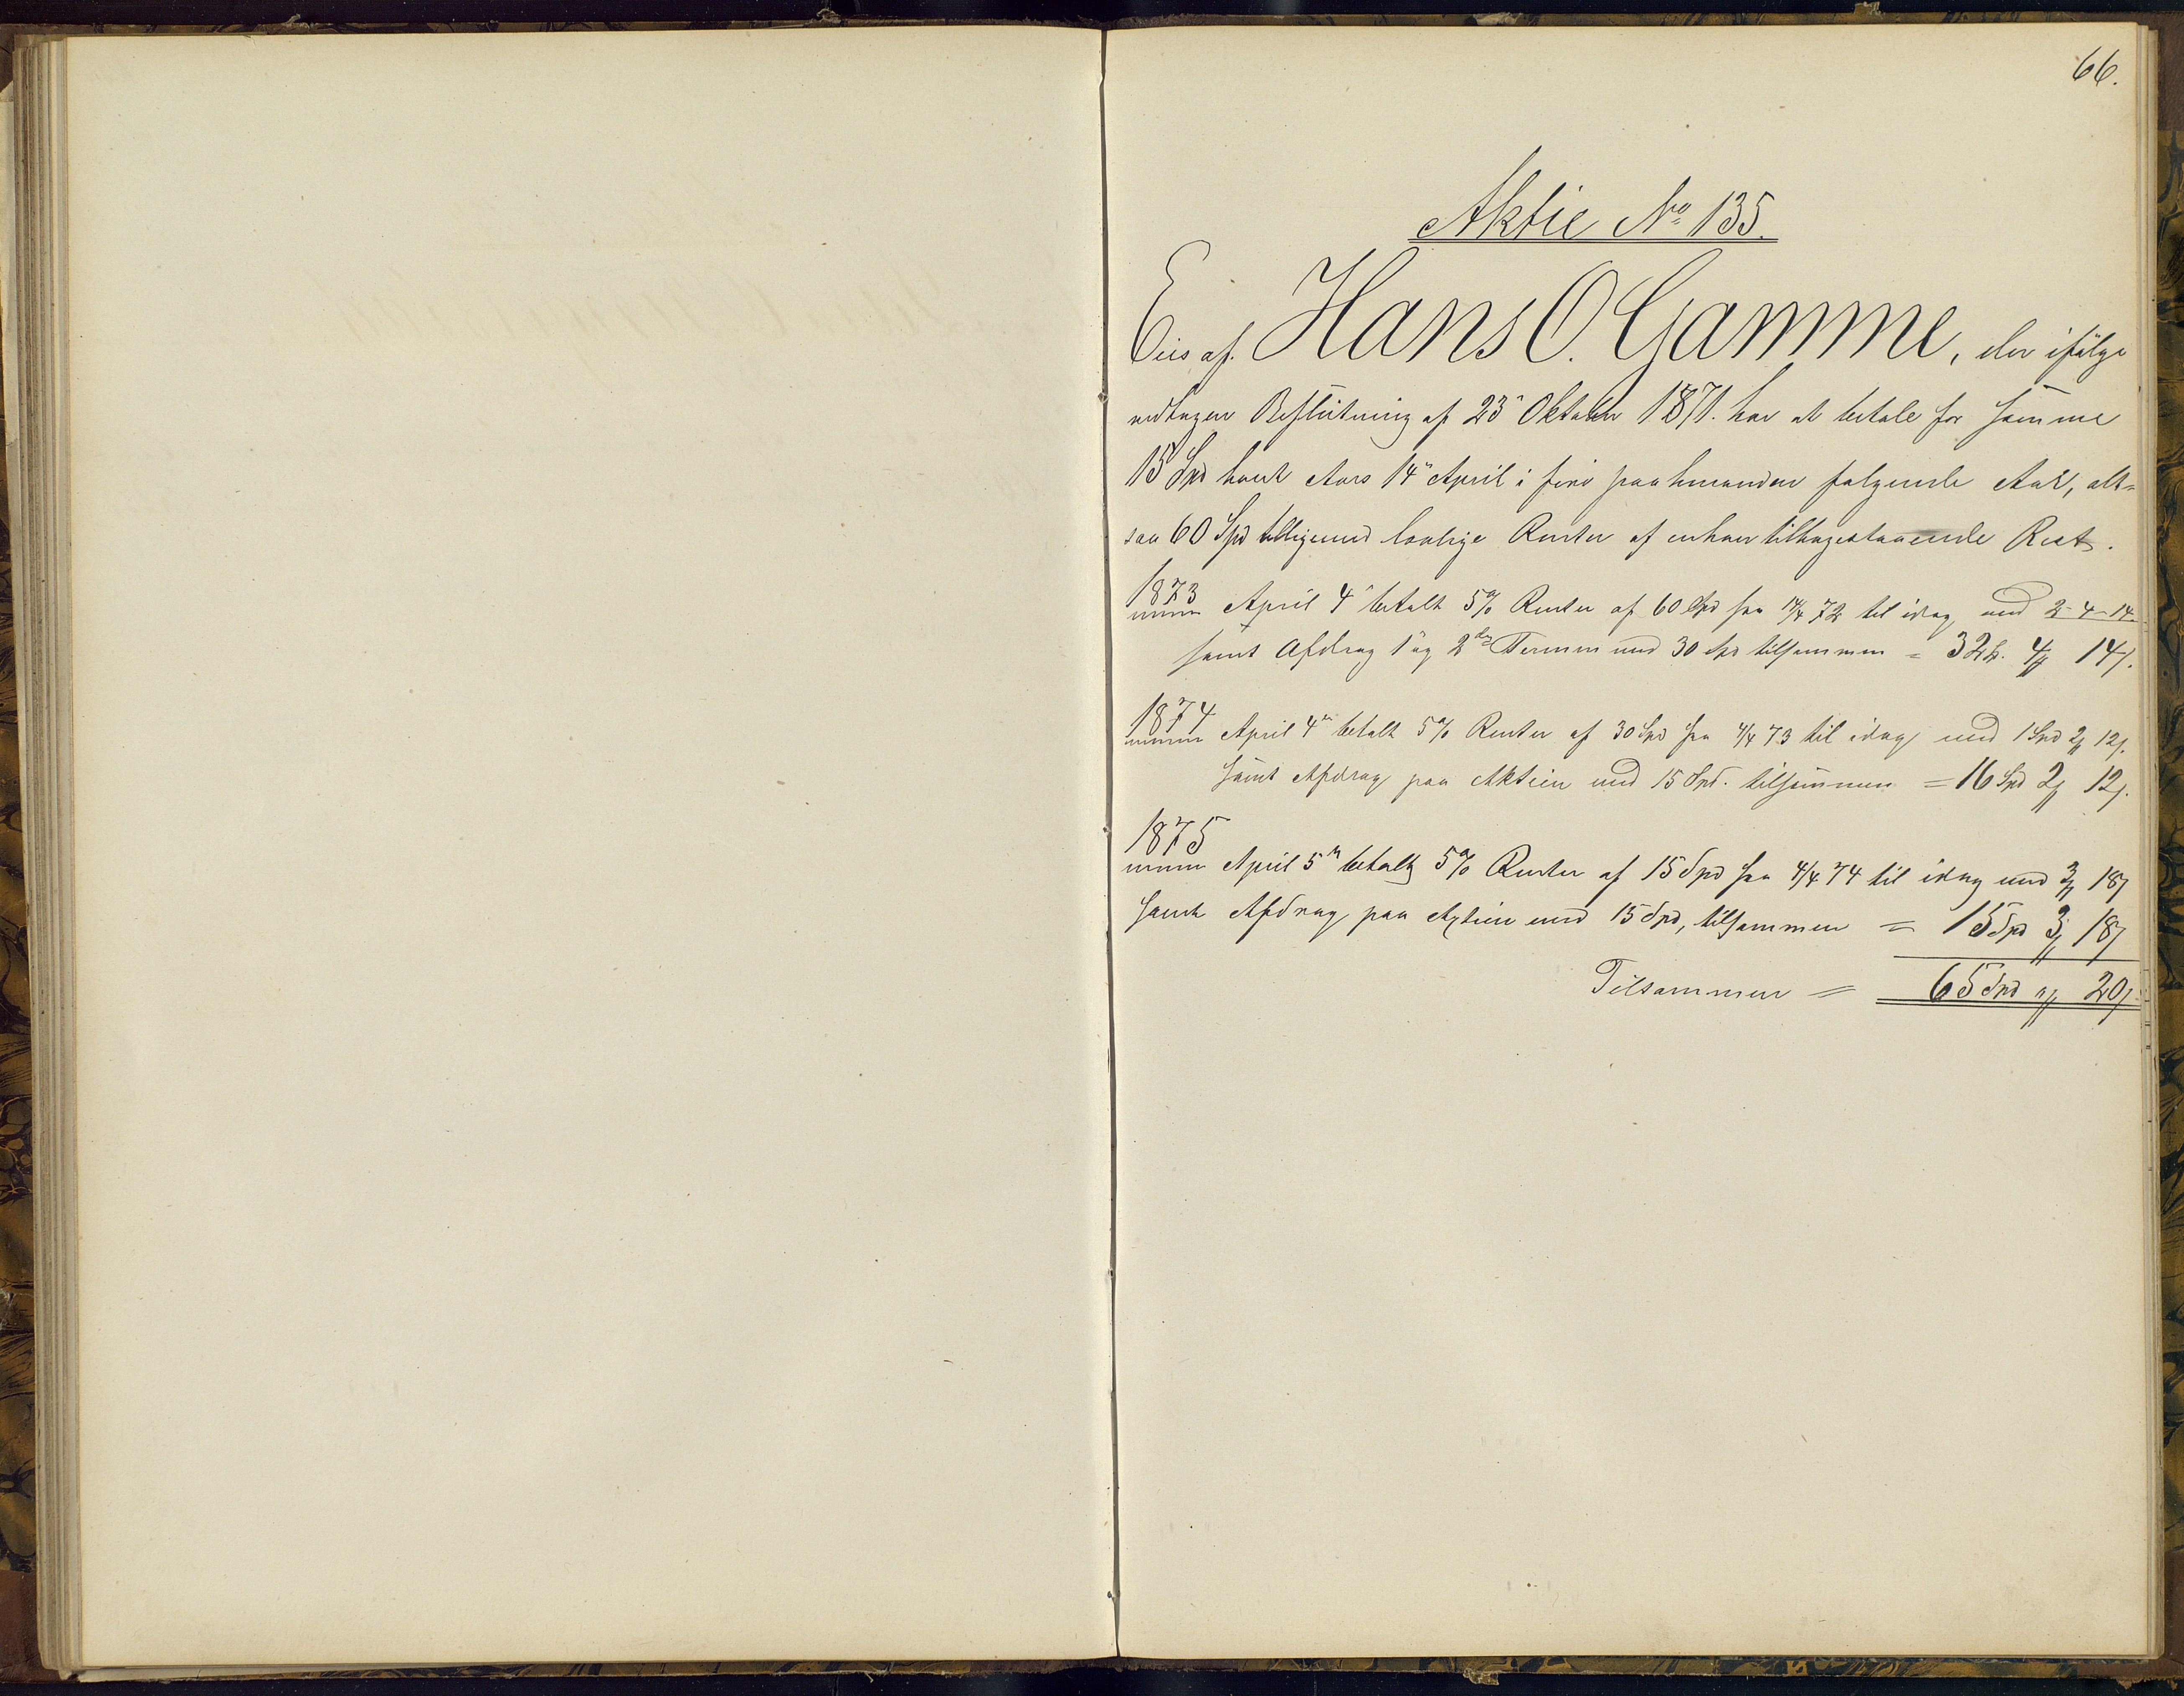 66.
Aktie No 135.
Eies af. Hans O. Gamme, der ifölge
vedtagen Beslutning af 23de Oktober 1871. har at betale for samme
15 Spd hvert Aars 14de April i fire paahinanden folgende Aar, alt-
saa 60 Spd tilligemed lovlige Renter af enhver tilbagestaaende Rest.
1873
April 4de betalt 5% Renter af 60 Spd fra 14/4 72 til idag med 2-4-14.
samt Afdrag 1ste og 2den Termin med 30 Spd tilsammen = 32 4 14
1874
April 4de betalt 5% Renter af 30 Spd fra 4/4 73 til idag med 1 Spd 2 12
samt Afdrag paa Aktien med 15 Spd. tilsammen = 16 Spd 2 12
1875
April 5te betalt 5% Renter af 15 Spd fra 4/4 74 til idag med 3 18
samt Afdrag paa Aktien med 15 Spd, tilsammen = 15 Spd 3 18
Tilsammen = 65 Spd 20